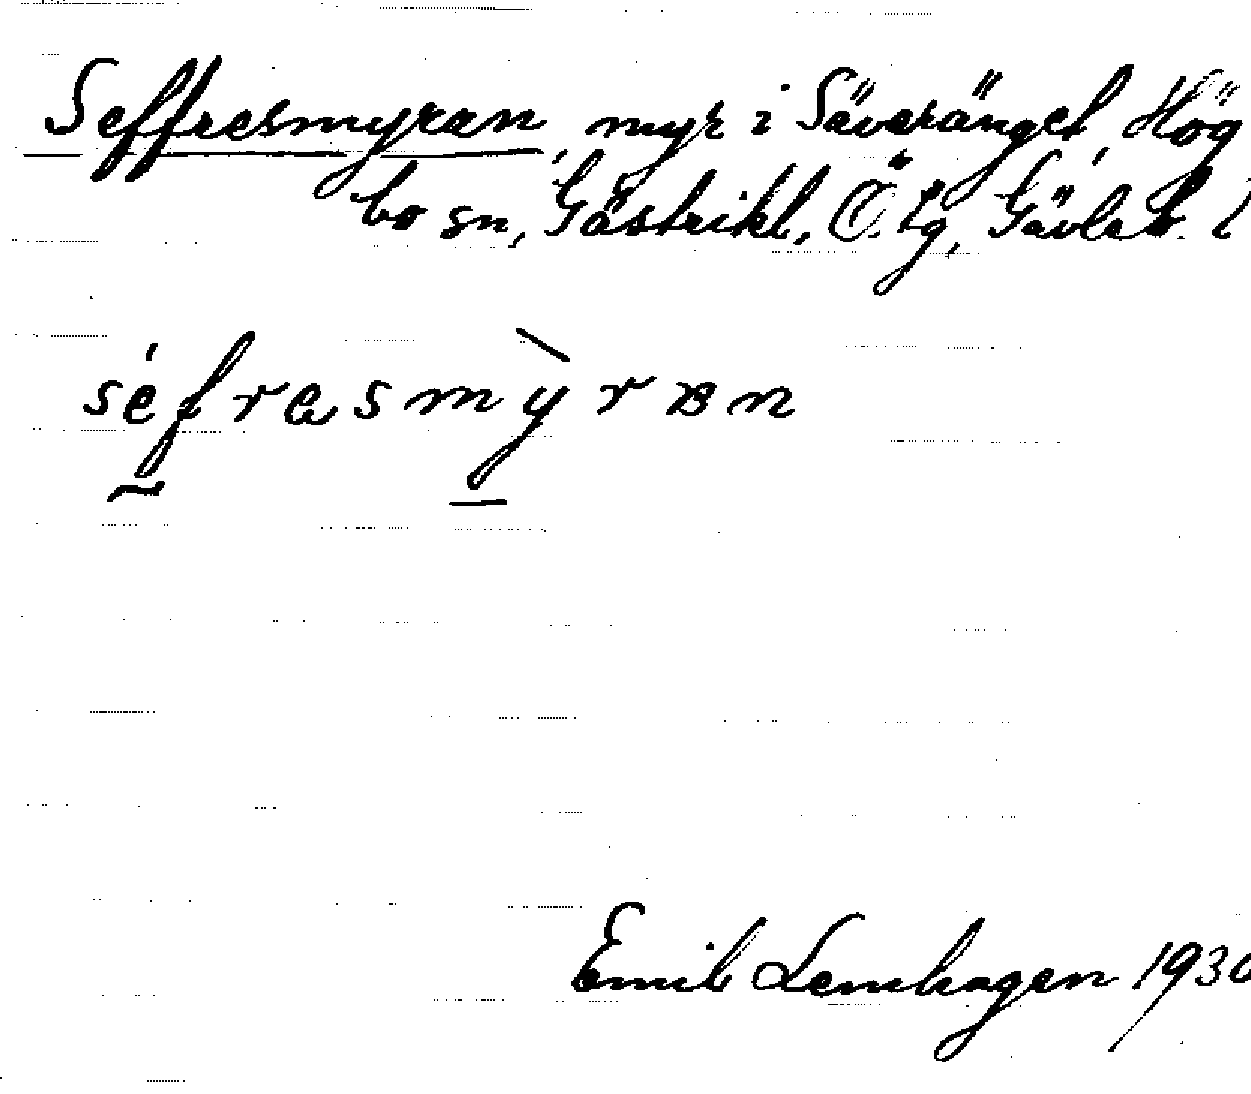 Seffresmyran, myr i Säveränget, Hög
bo sn, Gästrikl, Ö. tg, Gävleb. l
séfrasmỳran
Emil Lemhagen 1930